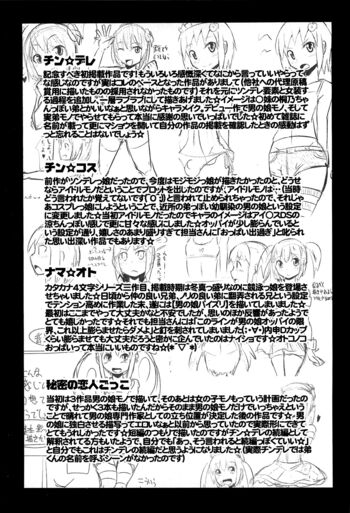 チン☆デレ
記念すべき初掲載作品です！もういろいろ感慨深くてなにから言っていいやらって
な感じなのですが実はコレのベースとなった作品がありまして(他社への代理原稿
賞用に描いたものの採用はされなかったものです)それを元にツンデレ要素と女装す
る過程を追加し、一層ラブラブにして描きあげました☆イメージは○妹の桐乃ちゃ
んっぽい弟とかいいなぁと思いながらキャラメイク、デビュー作で男の娘モノ、そして
実弟モノでやらせてもらって本当に感謝の思いでいっぱいでした☆初めて雑誌に
名前が載って更にマ○ショウを開いて自分の作品の掲載を確認したときの感動はず
っと忘れることはないでしょう☆
チン☆コス
前作がツンデレっ娘だったので、今度はモジモジっ娘が描きたかったのと、どうせ
ならアイドルモノだということでプロットを出したのですが、アイドルモノは…(当時
どう言われたか覚えてないです(゜д゜;))と言われて止められちゃったので、それじゃ
あコスプレっ娘にしようということで、近所の弟っぽい幼馴染の男の娘という設定
に変更しました☆当初アイドルモノだったのでキャライメージはアイ○スDSの
涼ちんっぽい感じで更に甘々な感じにしました☆オッパイが少し膨らんでいると
いう設定が通り、嬉しさのあまり盛りすぎて担当さんに「おっぱい出過ぎ」と叱られ
た思い出深い作品でもあります☆
ナマ☆オト
カタカナ4文字シリーズ三作目、掲載時期は冬真っ盛りなのに競泳っ娘を登場さ
せちゃいました☆日頃から仲の良い兄弟、ノリの良い弟に翻弄される兄という設定
でテンション高めに作業した末、遂には『男の娘パイズリ』を描いてしまいました☆
最初はここまでやって大丈夫かなと不安でしたが、思いのほか反響があったようで
とても嬉しかったです☆それでも担当さんには「このラインが男の娘オッパイの限
界、これ以上膨らませたらダメよ」と釘を刺されてしまいました(；・∀・)内申Dカップ
くらい膨らませても大丈夫だろうと密かに企んでいたのはナイショです☆オトコノコ
おっぱいって本当にいいものですね☆(*´∀`*)
秘密の恋人ごっこ
当初は3作品男の娘モノ描いて、そのあとは女の子モノもっていう計画だったので
すが、せっかく3本も描いたんだからそのまま男の娘モノだけでいっちゃえという
ことで晴れて男の娘専門作家としての立ち位置が決定した後の作品です☆・男
の娘に独白させる描写ってエロいなぁと以前から思っていたので実際形にできて
とてもうれしかったです☆短編のつもりで描いたのですがチン☆デレの続編として
解釈されてる方もいたようで、自分でも「あっ、そう言われると続編っぽくていい」
と自分でもこれはチンデレの続編だと思うようになりました☆(実際チンデレでは弟
くんの名前を呼ぶシーンがなかったのです)